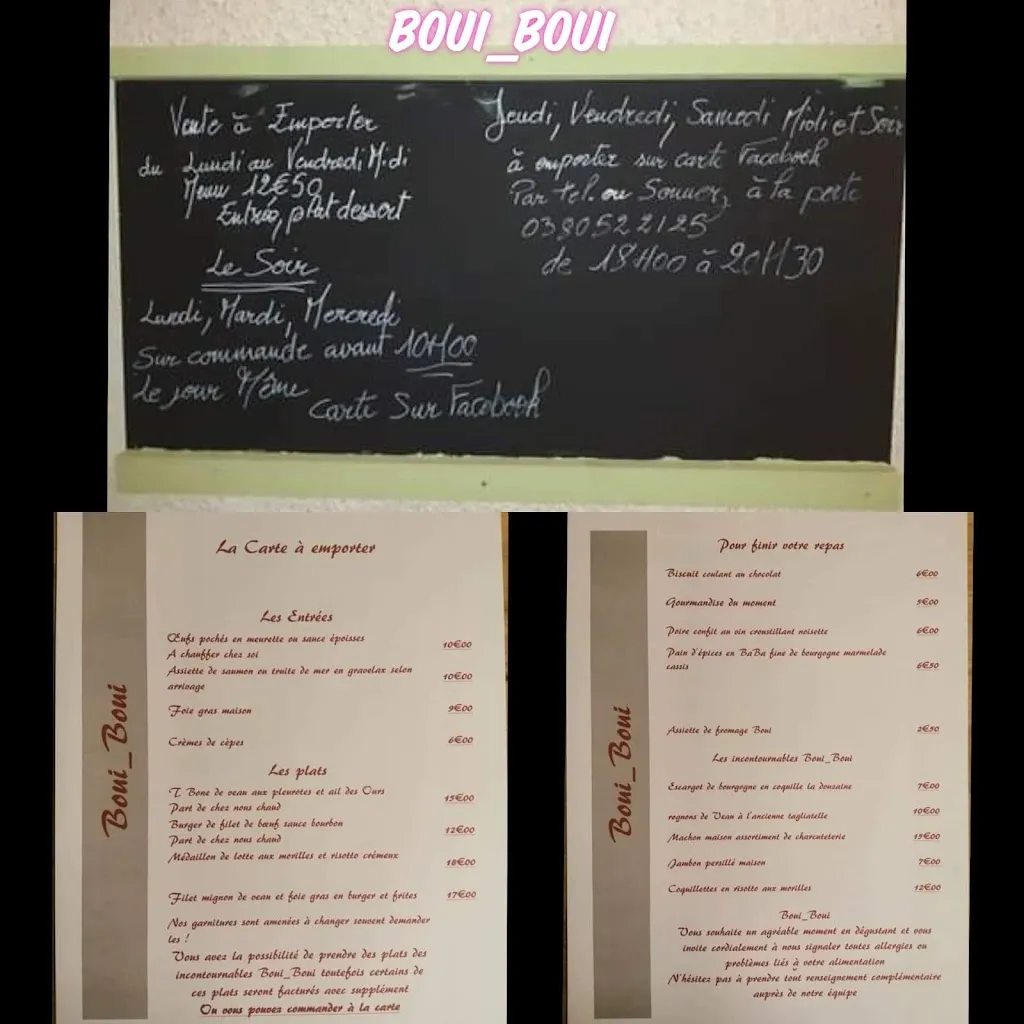 BOUI_BOUI
Vente à Emporter
du Lundi au Vendredi Midi
Menu 12€50
Entrée, plat dessert
Le Soir
Lundi, Mardi, Mercredi
Sur commande avant 10H00
le jour Même
Carte Sur Facebook
Jeudi, Vendredi, Samedi Midi et Soir
à emporter sur carte Facebook
Par tel. ou Sonner, à la porte
0380522125
de 18H00 à 20H30
Boui_Boui
La Carte à emporter
Les Entrées
Œufs pochés en meurette ou sauce époisses
A chauffer chez soi 10€00
Assiette de saumon ou truite de mer en gravelax selon
arrivage 10€00
Foie gras maison 9€00
Crèmes de cèpes 6€00
Les plats
T Bone de veau aux pleurotes et ail des Ours
Part de chez nous chaud 15€00
Burger de filet de bœuf sauce bourbon
Part de chez nous chaud 12€00
Médaillon de lotte aux morilles et risotto crémeux 18€00
Filet mignon de veau et foie gras en burger et frites 17€00
Nos garnitures sont amenées à changer souvent demander
les !
Vous avez la possibilité de prendre des plats des
incontournables Boui_Boui toutefois certains de
ces plats seront facturés avec supplément
Ou vous pouvez commander à la carte
Boui_Boui
Pour finir votre repas
Biscuit coulant au chocolat 6€00
Gourmandise du moment 5€00
Poire confit au vin croustillant noisette 6€00
Pain d'épices en BaBa fine de bourgogne marmelade
cassis 6€50
Assiette de fromage Boui 2€50
Les incontournables Boui_Boui
Escargot de bourgogne en coquille la douzaine 7€00
rognons de Veau à l'ancienne tagliatelle 10€00
Machon maison assortiment de charcuteterie 15€00
Jambon persillé maison 7€00
Coquillettes en risotto aux morilles 12€00
Boui_Boui
Vous souhaite un agréable moment en dégustant et vous
invite cordialement à nous signaler toutes allergies ou
problèmes liés à votre alimentation
N'hésitez pas à prendre tout renseignement complémentaire
auprès de notre équipe